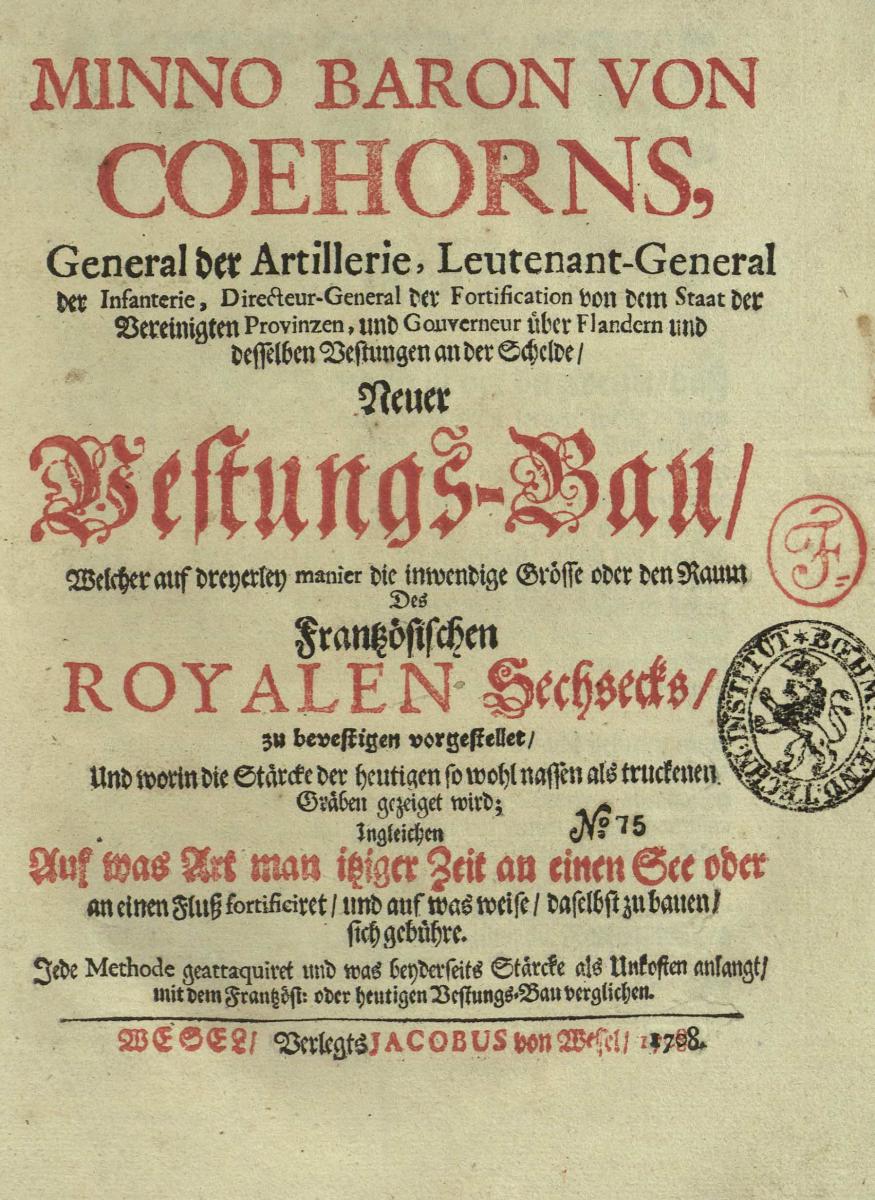 MINNO BARON VON
COEHORNS,
General der Artillerie, Leutenant-General
der Infanterie, Directeur-General der Fortification von dem Staat der
Vereinigten Provinzen, und Gouverneur über Flandern und
desselben Vestungen an der Schelde/
Neuer
Vestungs-Bau/
Welcher auf dreyerley manier die inwendige Grösse oder den Raum
Des
Frantzösischen
ROYALEN Sechsecks/
zu bevestigen vorgestellet/
Und worin die Stärcke der heutigen so wohl nassen als truckenen
Gräben gezeiget wird;
Ingleichen
Auf was Art man itziger Zeit an einen See oder
an einen Fluß fortificiret/ und auf was weise/ daselbst zu bauen/
sich gebühre.
Jede Methode geattaquiret und was beyderseits Stärcke als Unkosten anlangt/
mit dem Frantzös: oder heutigen Vestungs-Bau verglichen.
WESEL/ Verlegts JACOBUS von Wesel/ 1708.
F=
BŒHM. STÆND. TECHN. INSTITUT *
No. 75